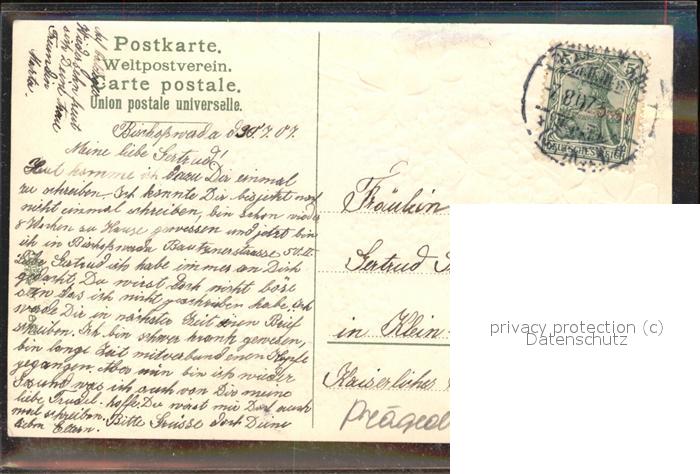 Postkarte.
Weltpostverein.
Carte postale.
Union postale universelle.
Auf baldiges
Wiedersehn freut
sich Deine treue
Freundin
Marta.
Bischofswerda d. 30.7.07.
Meine liebe Gertrud!
Heut komme ich dazu Dir einmal
zu schreiben. Ich konnte Dir bis jetzt noch
nicht einmal schreiben, bin schon wieder
8 Wochen zu Hause gewesen und jetzt bin
ich in Bischofswerda Bautznerstrasse 50.II.
Liebe Gertrud ich habe immer an Dich
gedacht, Du wirst doch nicht böse
sein das ich nicht geschrieben habe. Ich
werde Dir in nächster Zeit einen Brief
schreiben. Ich bin schwer krank gewesen,
bin lange Zeit mit verbundenen Kopfe
gegangen. Aber nun bin ich wieder
Gesund was ich auch von Dir meine
liebe Trudel hoffe. Du wirst mir Doch auch
mal schreiben. Bitte Grüsse doch Deine
lieben Eltern.
Fräulein
Gertrud
in Klein-
Kaiserlicher
Präged
DEUTSCHES REICH
5
8.07
privacy protection (c)
Datenschutz